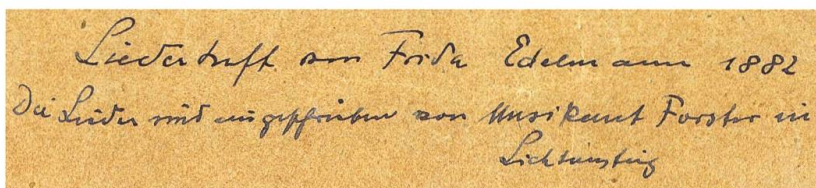 Liederheft von Frida Edelmann 1882
Die Lieder sind eingeschrieben von Musikant Forster in
Lichtensteig